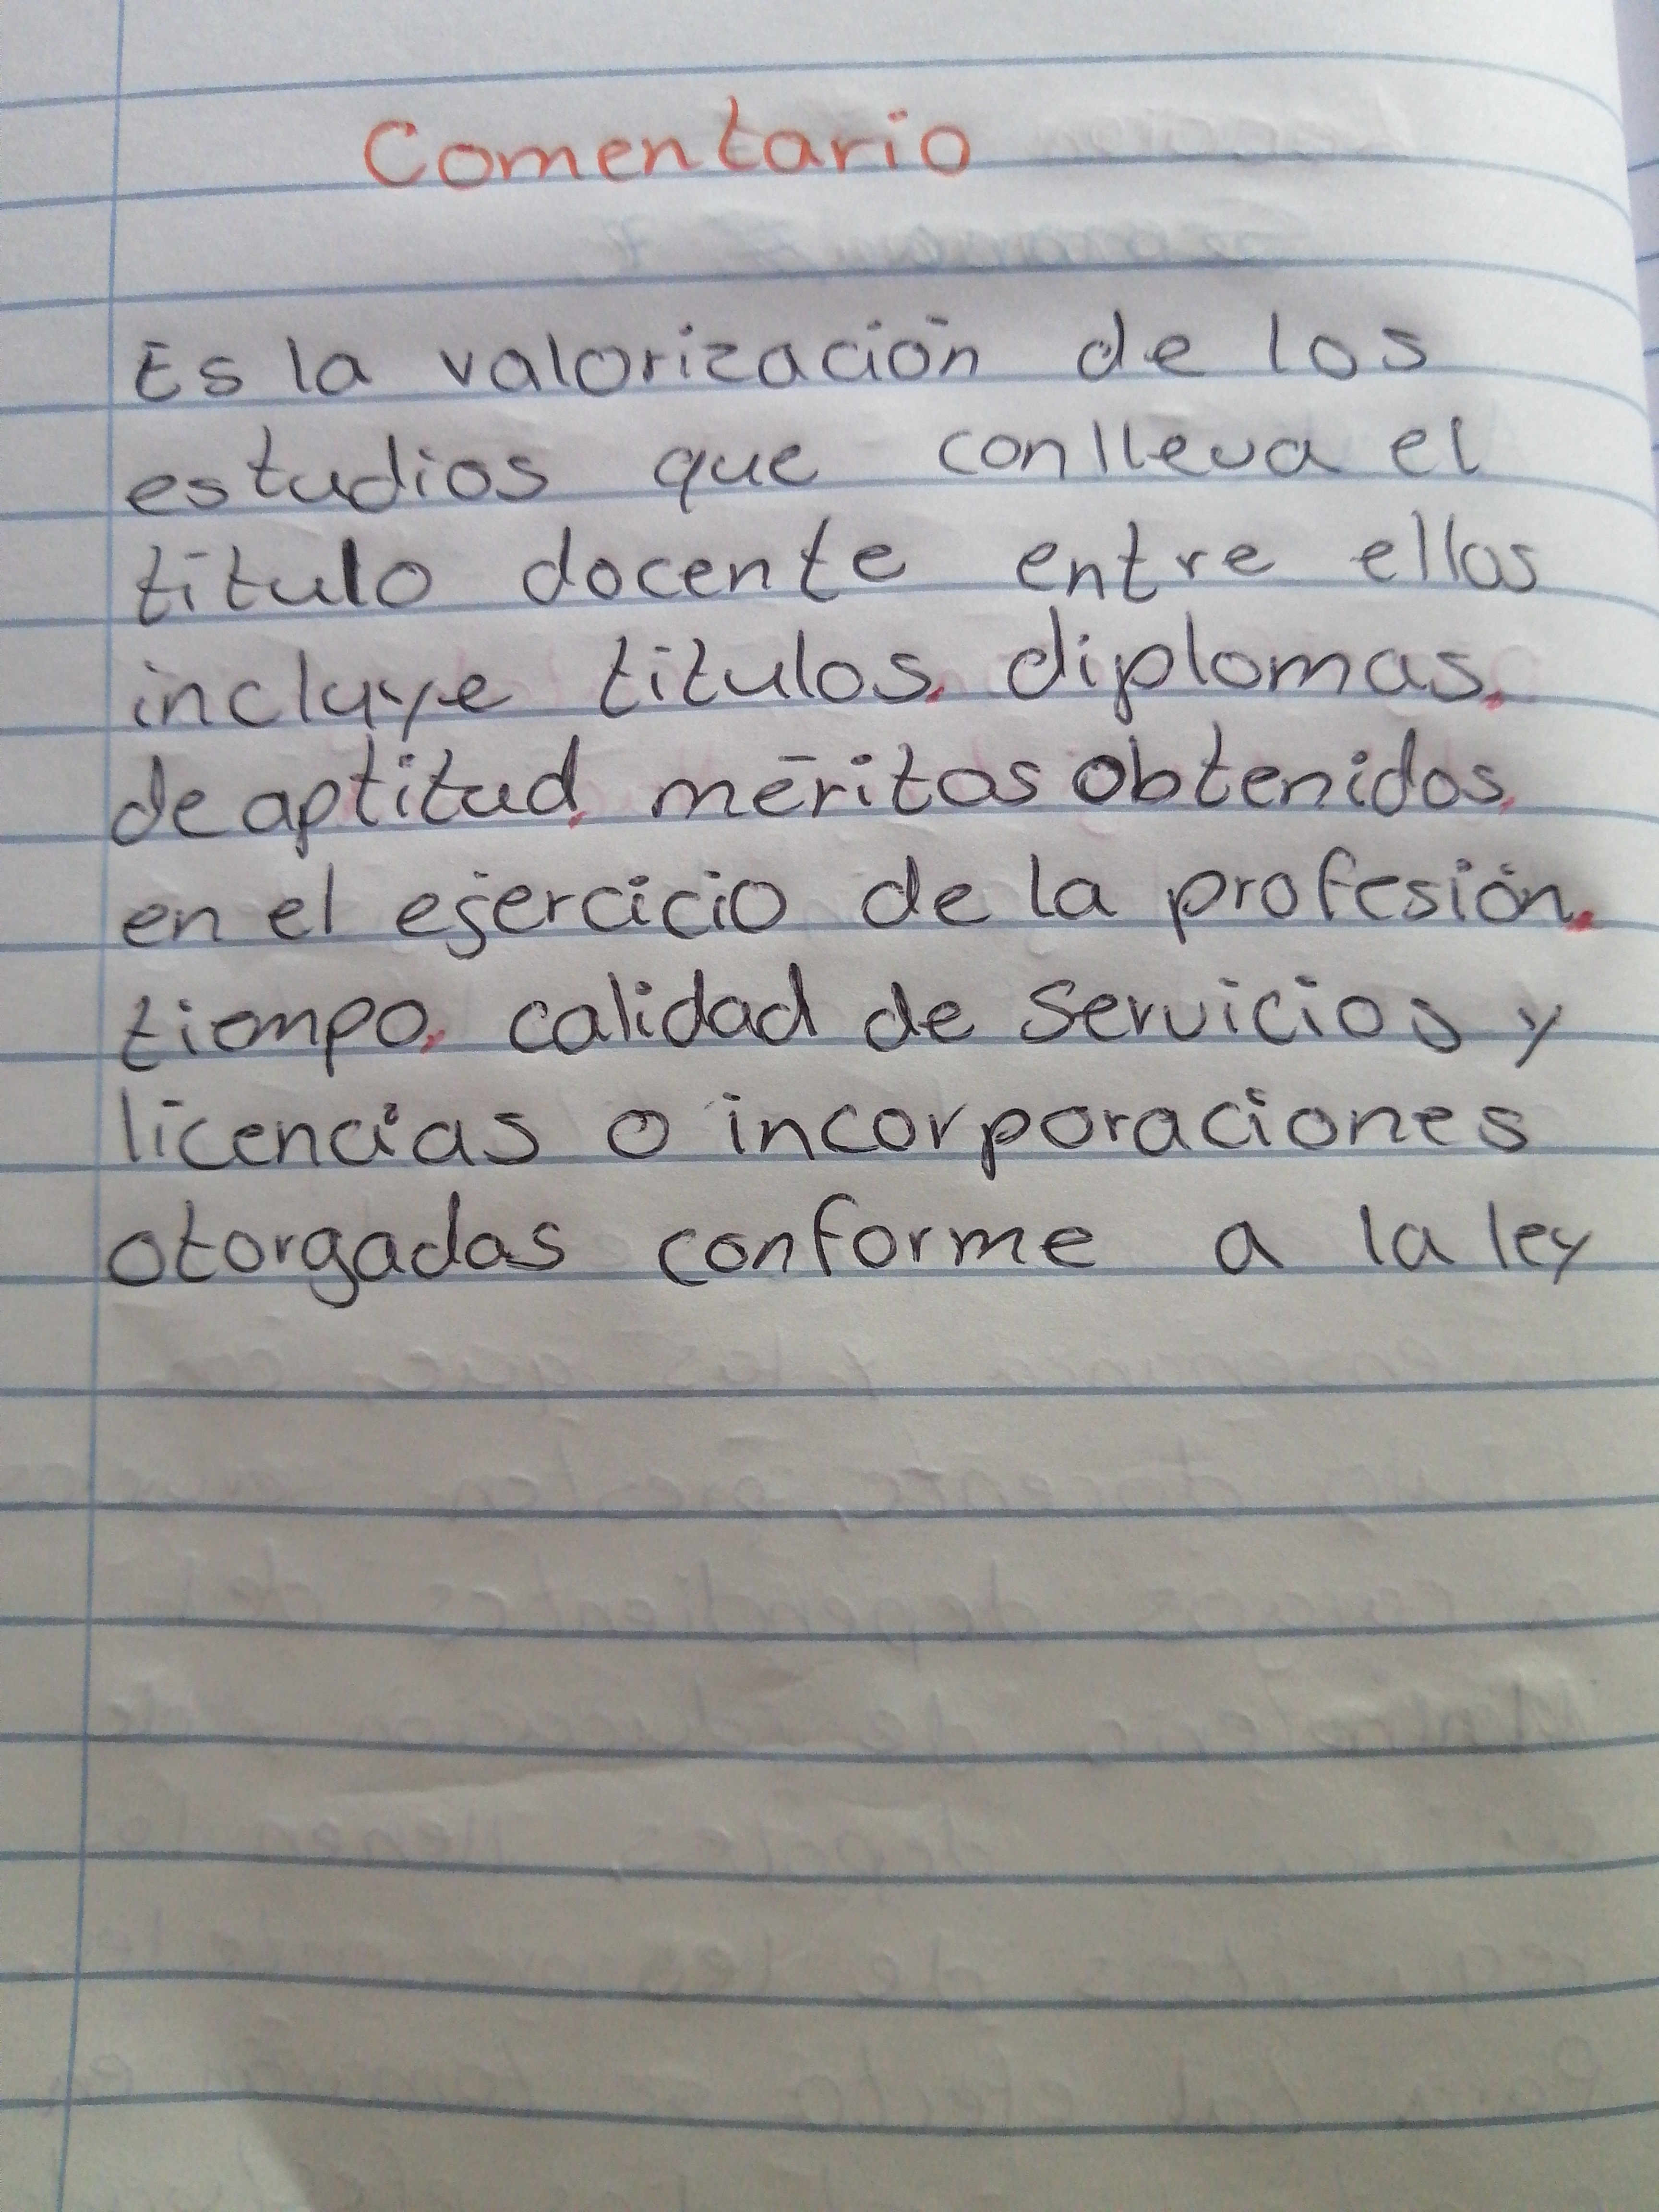 Comentario
Es la valorización de los
estudios que conlleva el
título docente entre ellos
incluye titulos, diplomas,
de aptitud, méritos obtenidos,
en el ejercicio de la profesión,
tiempo, calidad de servicios y
licencias o incorporaciones
otorgadas conforme a la ley